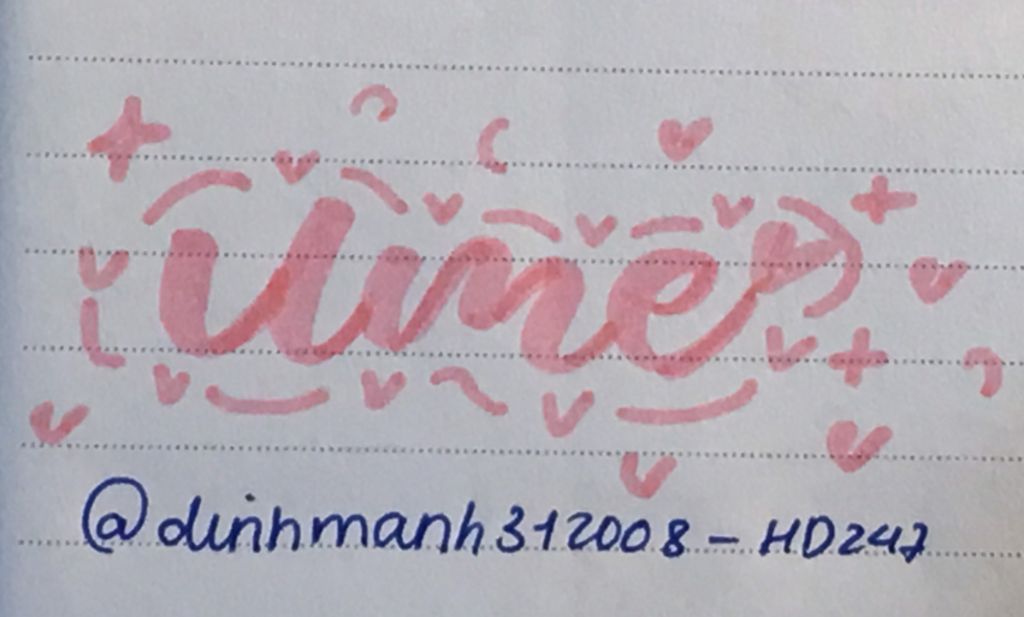 Ume
@dinhmanh312008 - HD247